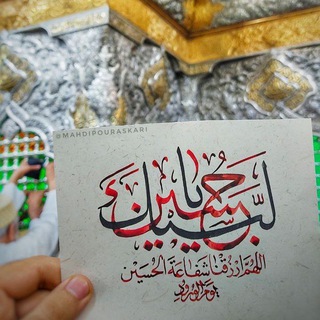 @MAHDIPOURASKARI
لبیک یا حسین
اللهم ارزقنا شفاعة الحسین
یوم الورود